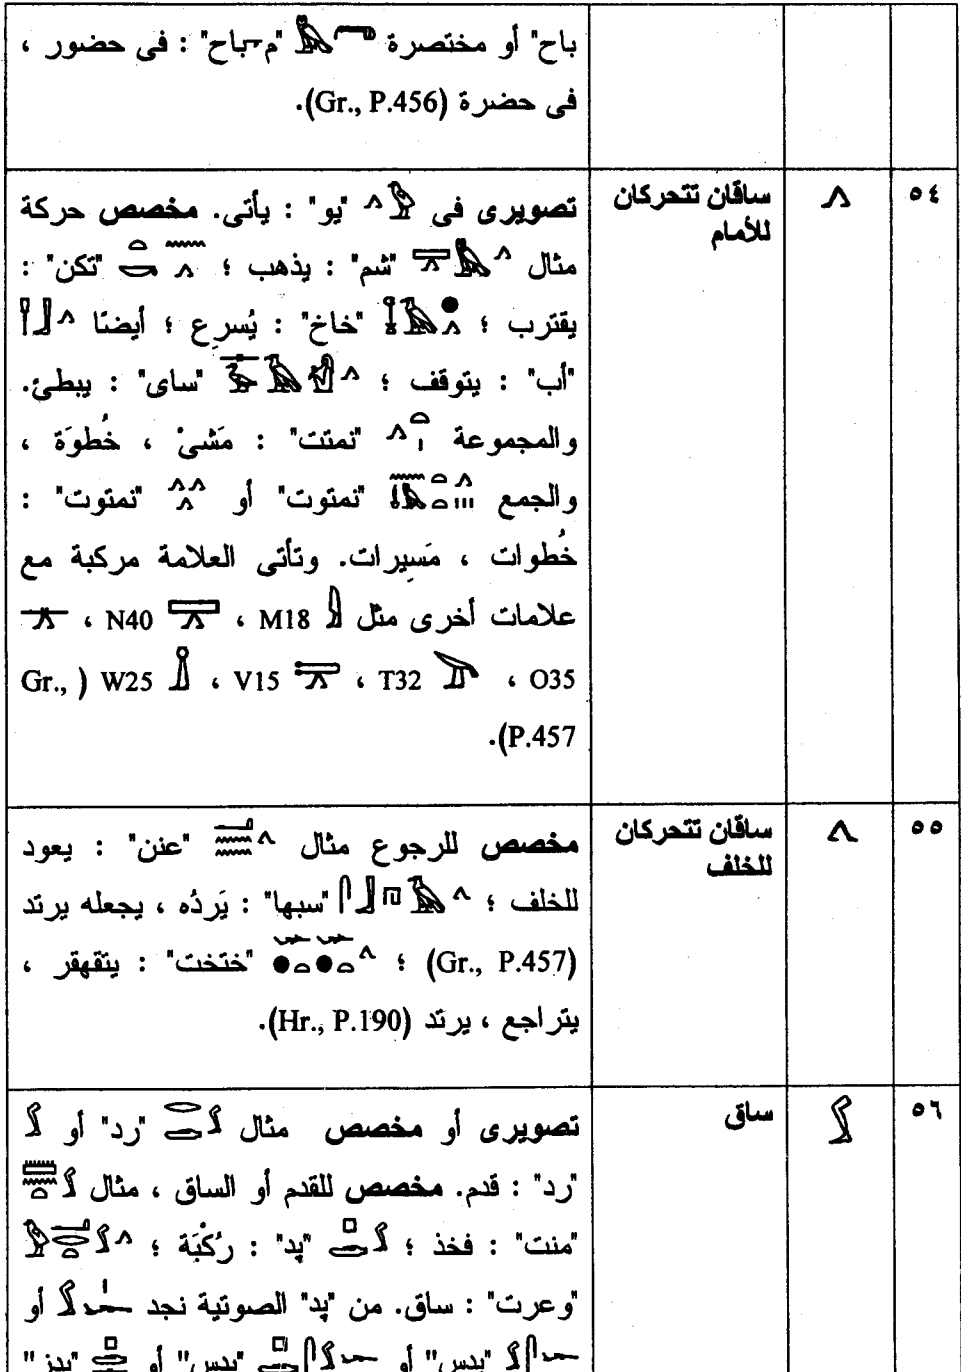 باح" أو مختصرة "م-باح" : فى حضور ،
فى حضرة (Gr., P.456).
٥٤
ساقان تتحركان
للأمام
تصويرى فى "يو" : يأتى. مخصص حركة
مثال "شم" : يذهب ؛ "تكن" :
يقترب ؛ "خاخ" : يُسرِع ؛ أيضًا
"أب" : يتوقف ؛ "ساى" : يبطئ.
والمجموعة "نمتت" : مَشىْ ، خُطوَة ،
والجمع "نمتوت" أو "نمتوت" :
خُطوات ، مَسِيرات. وتأتى العلامة مركبة مع
علامات أخرى مثل M18 ، N40 ،
O35 ، T32 ، V15 ، W25 ( Gr.,
P.457).
٥٥
ساقان تتحركان
للخلف
مخصص للرجوع مثال "عنن" : يعود
للخلف ؛ "سبها" : يَردُه ، يجعله يرتد
(Gr., P.457) ؛ "ختخت" : يتقهقر ،
يتراجع ، يرتد (Hr., P.190).
٥٦
ساق
تصويرى أو مخصص مثال "رد" أو
"رد" : قدم. مخصص للقدم أو الساق ، مثال
"منت" : فخذ ؛ "پد" : رُكْبَة ؛
"وعرت" : ساق. من "پد" الصوتية نجد أو
"پدس" أو "پدس" أو "پدز"